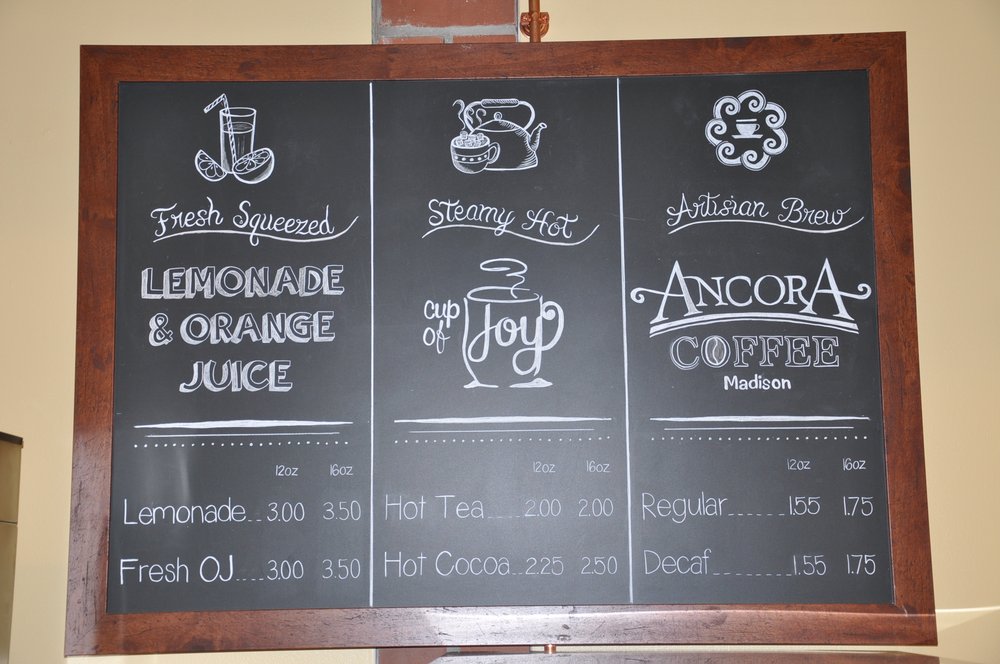 Fresh Squeezed
LEMONADE
& ORANGE
JUICE
12oz 16oz
Lemonade...3.00 3.50
Fresh OJ....3.00 3.50
Steamy Hot
cup
of Joy
12oz 16oz
Hot Tea......2.00 2.00
Hot Cocoa..2.25 2.50
Artisian Brew
ANCORA
COFFEE
Madison
12oz 16oz
Regular.......1.55 1.75
Decaf.........1.55 1.75